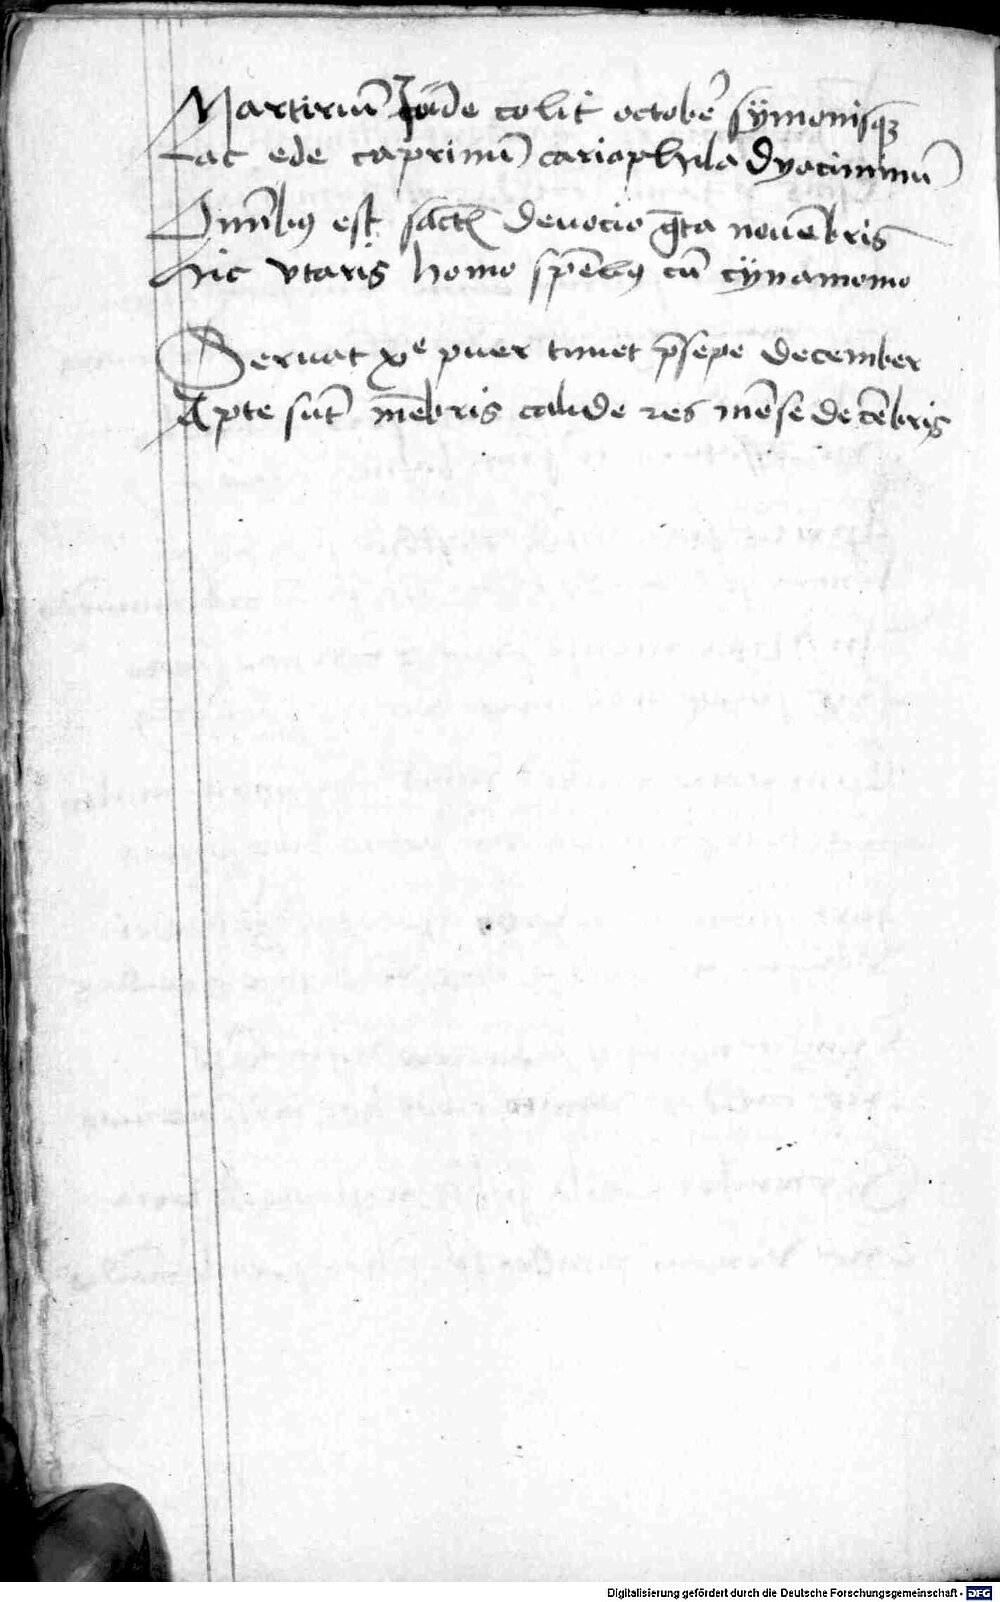 Martiriū Jude colit octob̄e sÿmonisqꝫ
Lac ede caprinū cariophila dyaciminū
Omībꝰ est sāctꝭ deuocio gͣta nouēbris
Hic vtaris homo cū cÿnamomo
Seruat xᵉ puer timet p̄sepe december
Apte sūt mēbris calide res mēse decēbris
Digitalisierung gefördert durch die Deutsche Forschungsgemeinschaft - DFG